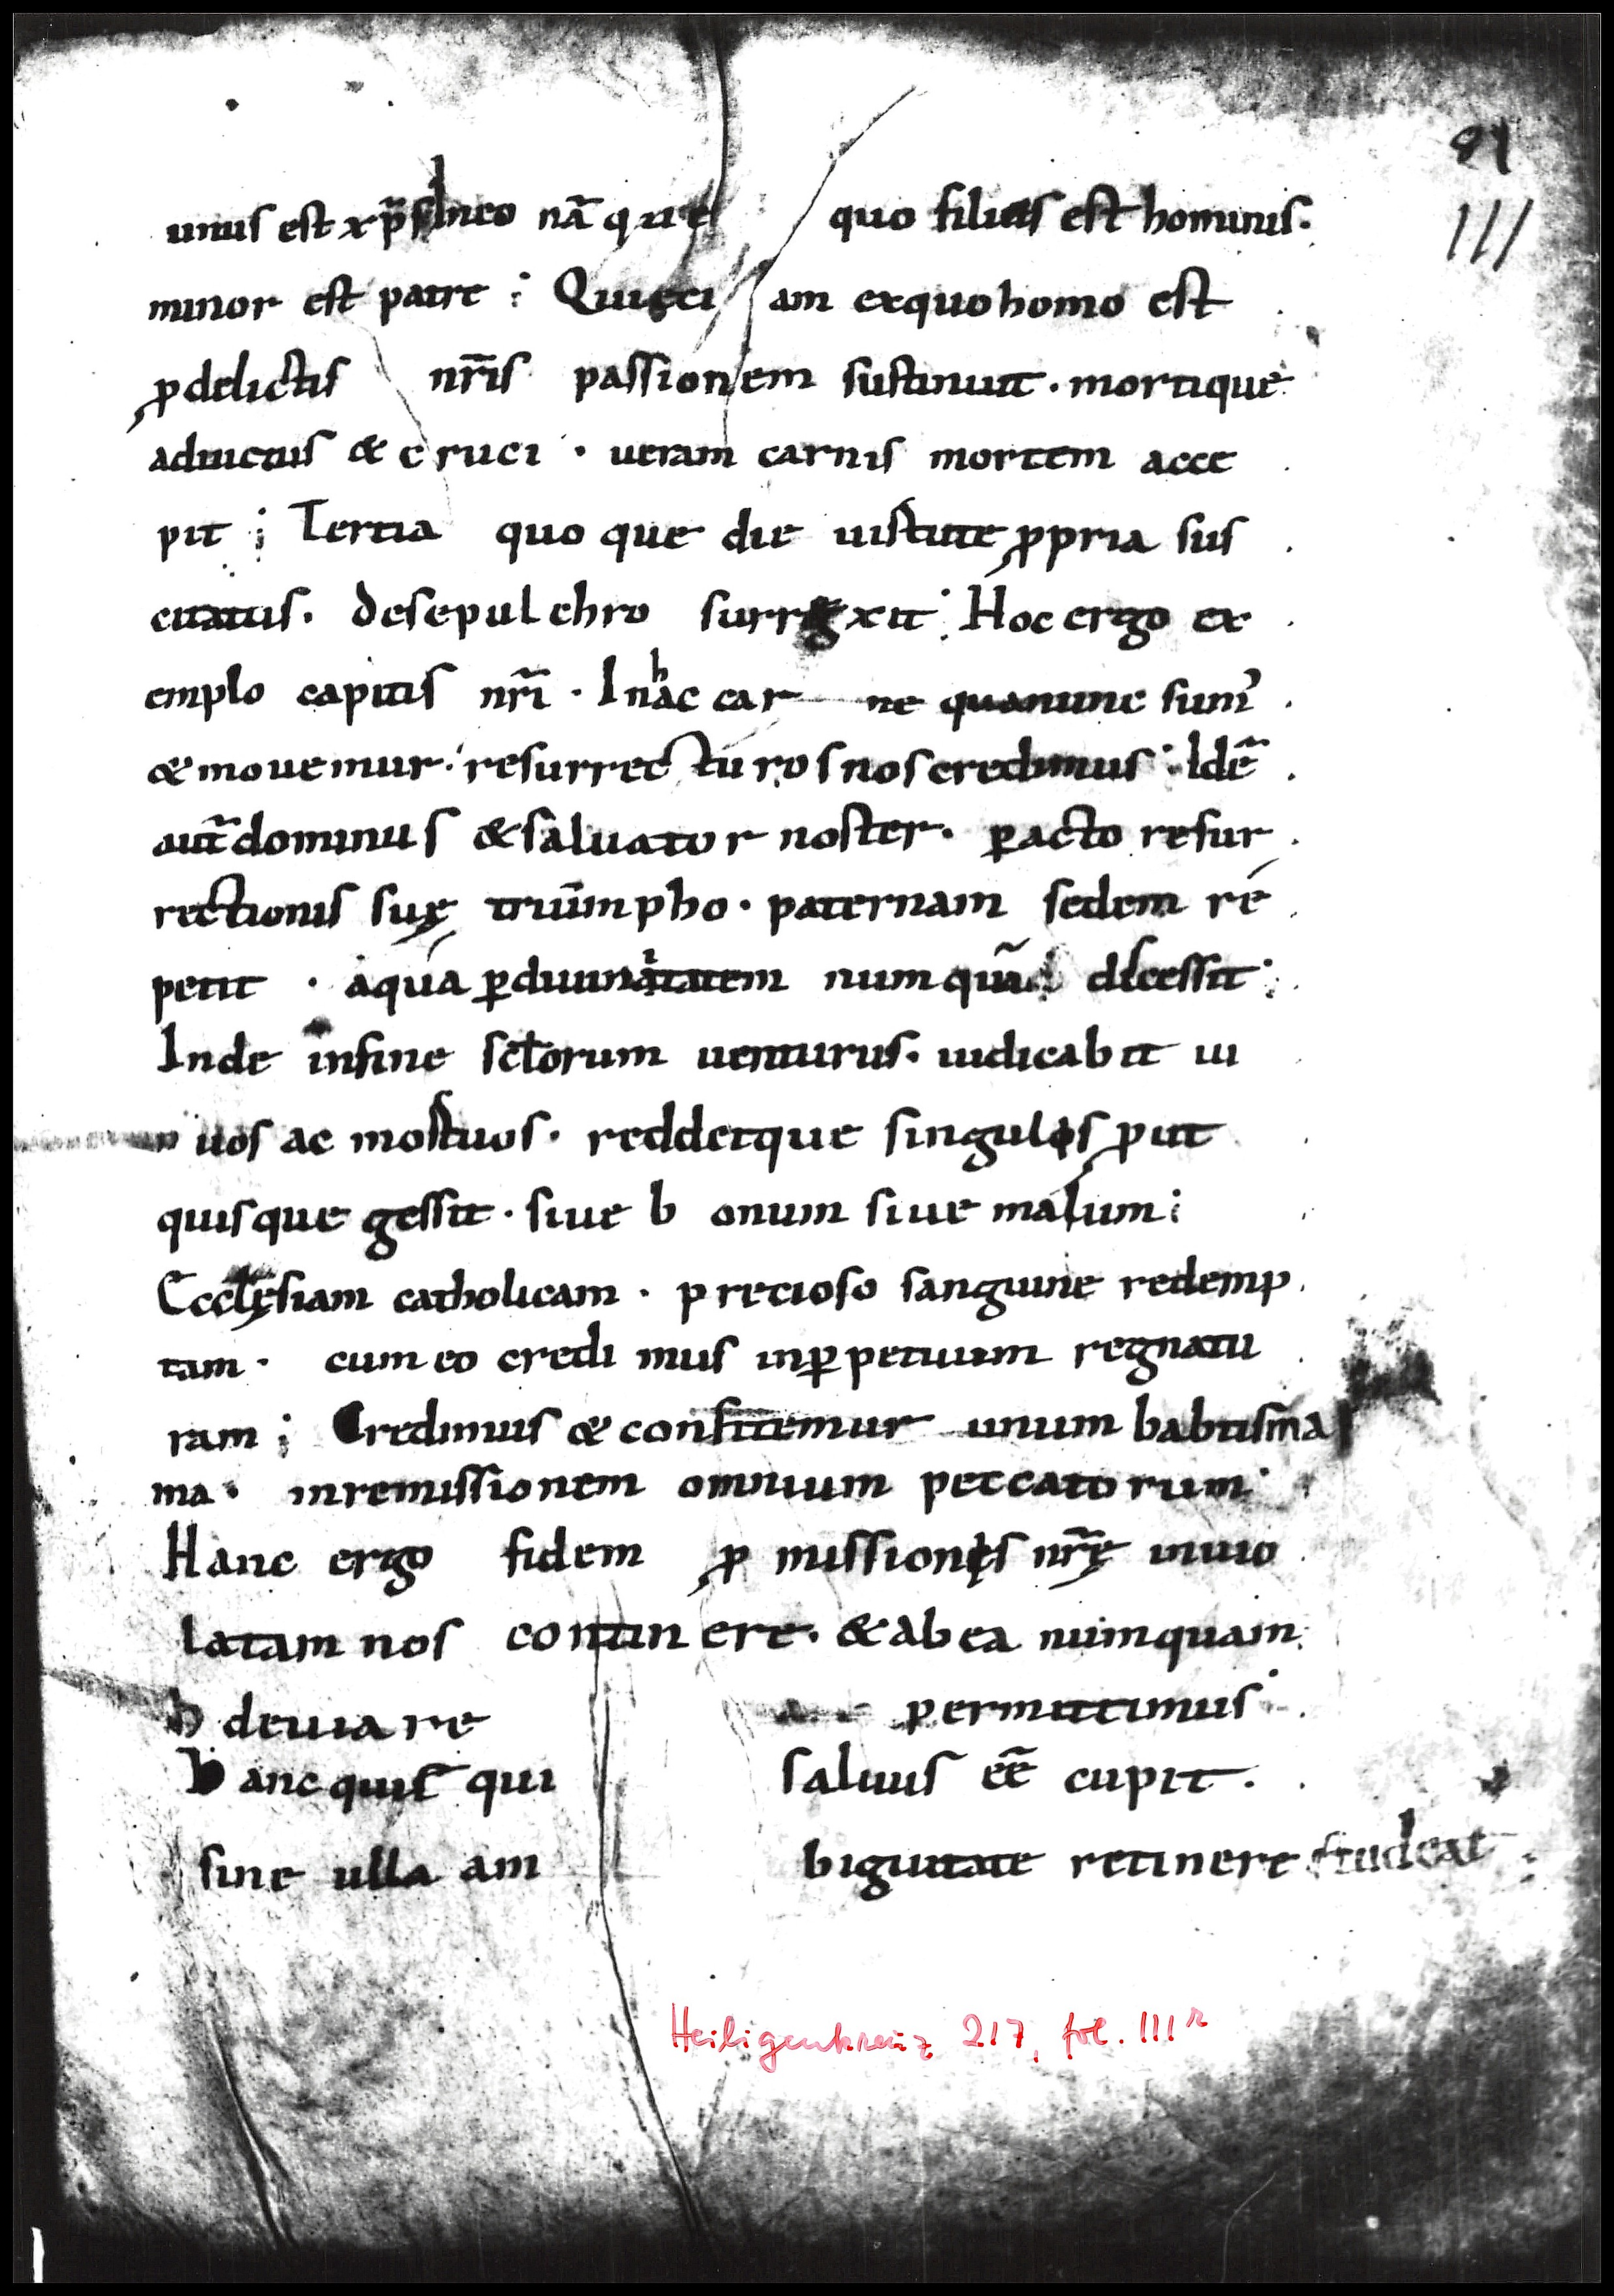 91
III
unus est xp̄s Ineo nā que quo filius est hominis.
minor est patre ; Qui eti am exquo homo est
pdelictis nr̄is passionem sustinuit . mortique
adductus & cruci . ueram carnis mortem acce
pit ; Tertia quo que die uirtute ppria sus
citatus. desepulchro surrexit ; Hoc ergo ex
emplo capitis nr̄i . Inhac car ne quanunc sum᾽
& mouemur. resurrecturos nos credimus ; Idē
aut̄ dominus & saluator noster. pacto resur
rectionis suę triūmpho . paternam sedem re
petit . aqua pdiuinitatem numquā dicessit ;
Inde infine sclorum uenturus. iudicabit ui
uos ac mortuos. reddetque singulis put
quisque gessit . siue b onum siue malum ;
Ecclęsiam catholicam . precioso sanguine redemp
tam . cum eo credi mus inppetuum regnatu
ram ; Credimus & confitemur unum babtisma
ma . inremissionem omnium peccatorum ;
Hanc ergo fidem p missionis nr̄ę inuio
latam nos continere. & ab ea numquam
deuiare permittimus
hanc quis qui saluus eē cupit .
sine ulla am biguitate retinere studeat
Heiligenkreuz 217, fol. III r